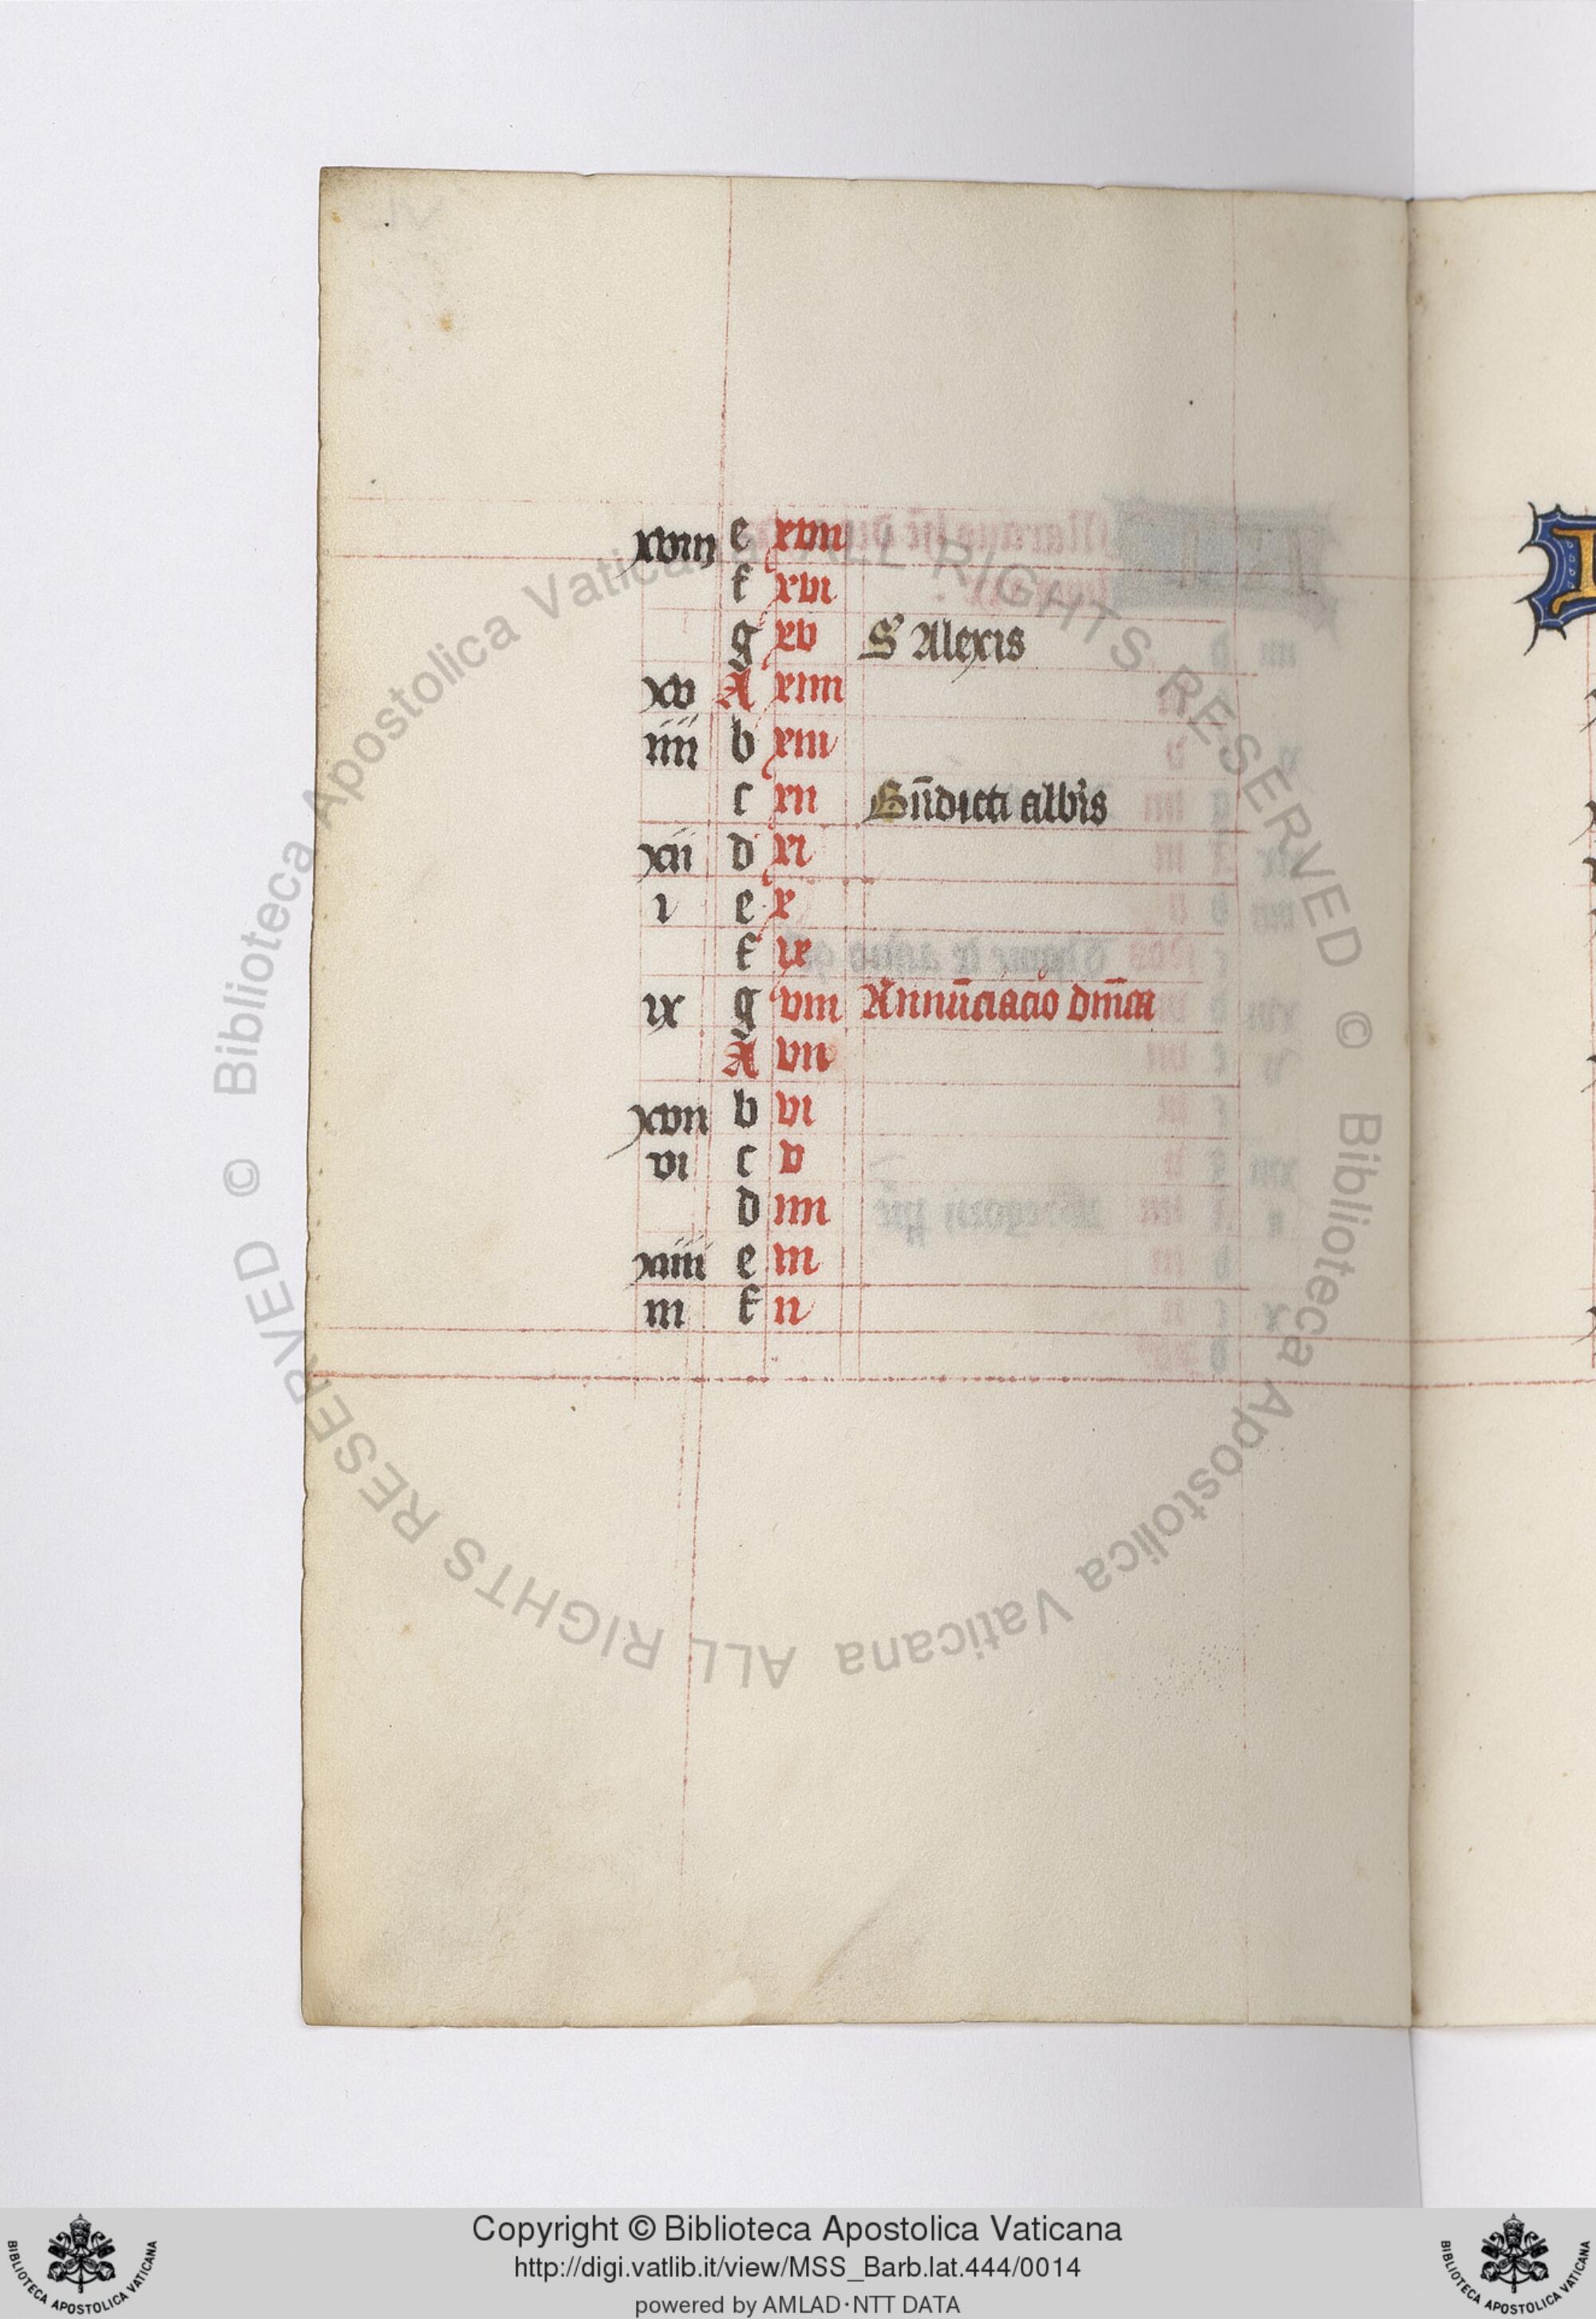 xviij e xvii
f xvi
g xv S' Alexis
xv A xiiii
iiii b xiii
c xii Bn̄dicti alb'is
xii d xi
i e x
f ix
ix g viii Annūciacio dm̄ca
A vii
xvii b vi
vi c v
d iiii
xiiii e iii
iii f ii
© Biblioteca Apostolica Vaticana ALL RIGHTS RESERVED © Biblioteca Apostolica Vaticana ALL RIGHTS RESERVED
Copyright © Biblioteca Apostolica Vaticana
http://digi.vatlib.it/view/MSS_Barb.lat.444/0014
powered by AMLAD·NTT DATA
BIBLIOTECA APOSTOLICA VATICANA
BIBLIOTECA APOSTOLICA VATICANA